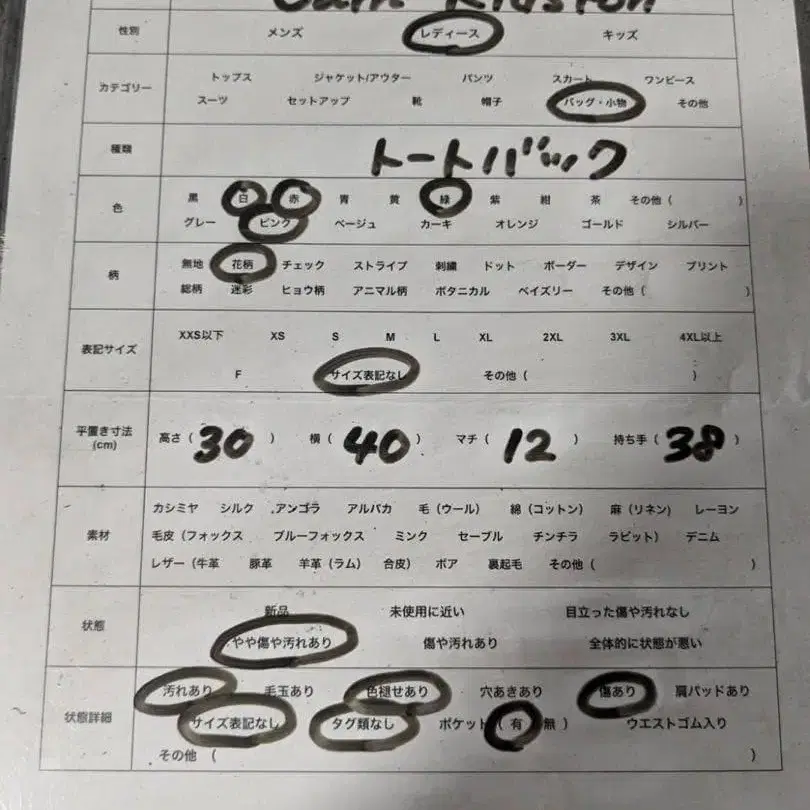 Kidston
性別 メンズ レディース キッズ
カテゴリー トップス ジャケット/アウター パンツ スカート ワンピース
スーツ セットアップ 靴 帽子 バッグ・小物 その他
種類 トートバック
色 黒 白 赤 青 黄 緑 紫 紺 茶 その他 ( )
グレー ピンク ベージュ カーキ オレンジ ゴールド シルバー
柄 無地 花柄 チェック ストライプ 刺繍 ドット ボーダー デザイン プリント
総柄 迷彩 ヒョウ柄 アニマル柄 ボタニカル ペイズリー その他 ( )
表記サイズ XXS以下 XS S M L XL 2XL 3XL 4XL以上
F サイズ表記なし その他 ( )
平置き寸法 (cm) 高さ ( 30 ) 横 ( 40 ) マチ ( 12 ) 持ち手 ( 38 )
素材 カシミヤ シルク アンゴラ アルパカ 毛 (ウール) 綿 (コットン) 麻 (リネン) レーヨン
毛皮 (フォックス ブルーフォックス ミンク セーブル チンチラ ラビット) デニム
レザー (牛革 豚革 羊革 (ラム) 合皮) ボア 裏起毛 その他 ( )
状態 新品 未使用に近い 目立った傷や汚れなし
やや傷や汚れあり 傷や汚れあり 全体的に状態が悪い
状態詳細 汚れあり 毛玉あり 色褪せあり 穴あきあり 傷あり 肩パッドあり
サイズ表記なし タグ類なし ポケット ( 有 無 ) ウエストゴム入り
その他 ( )